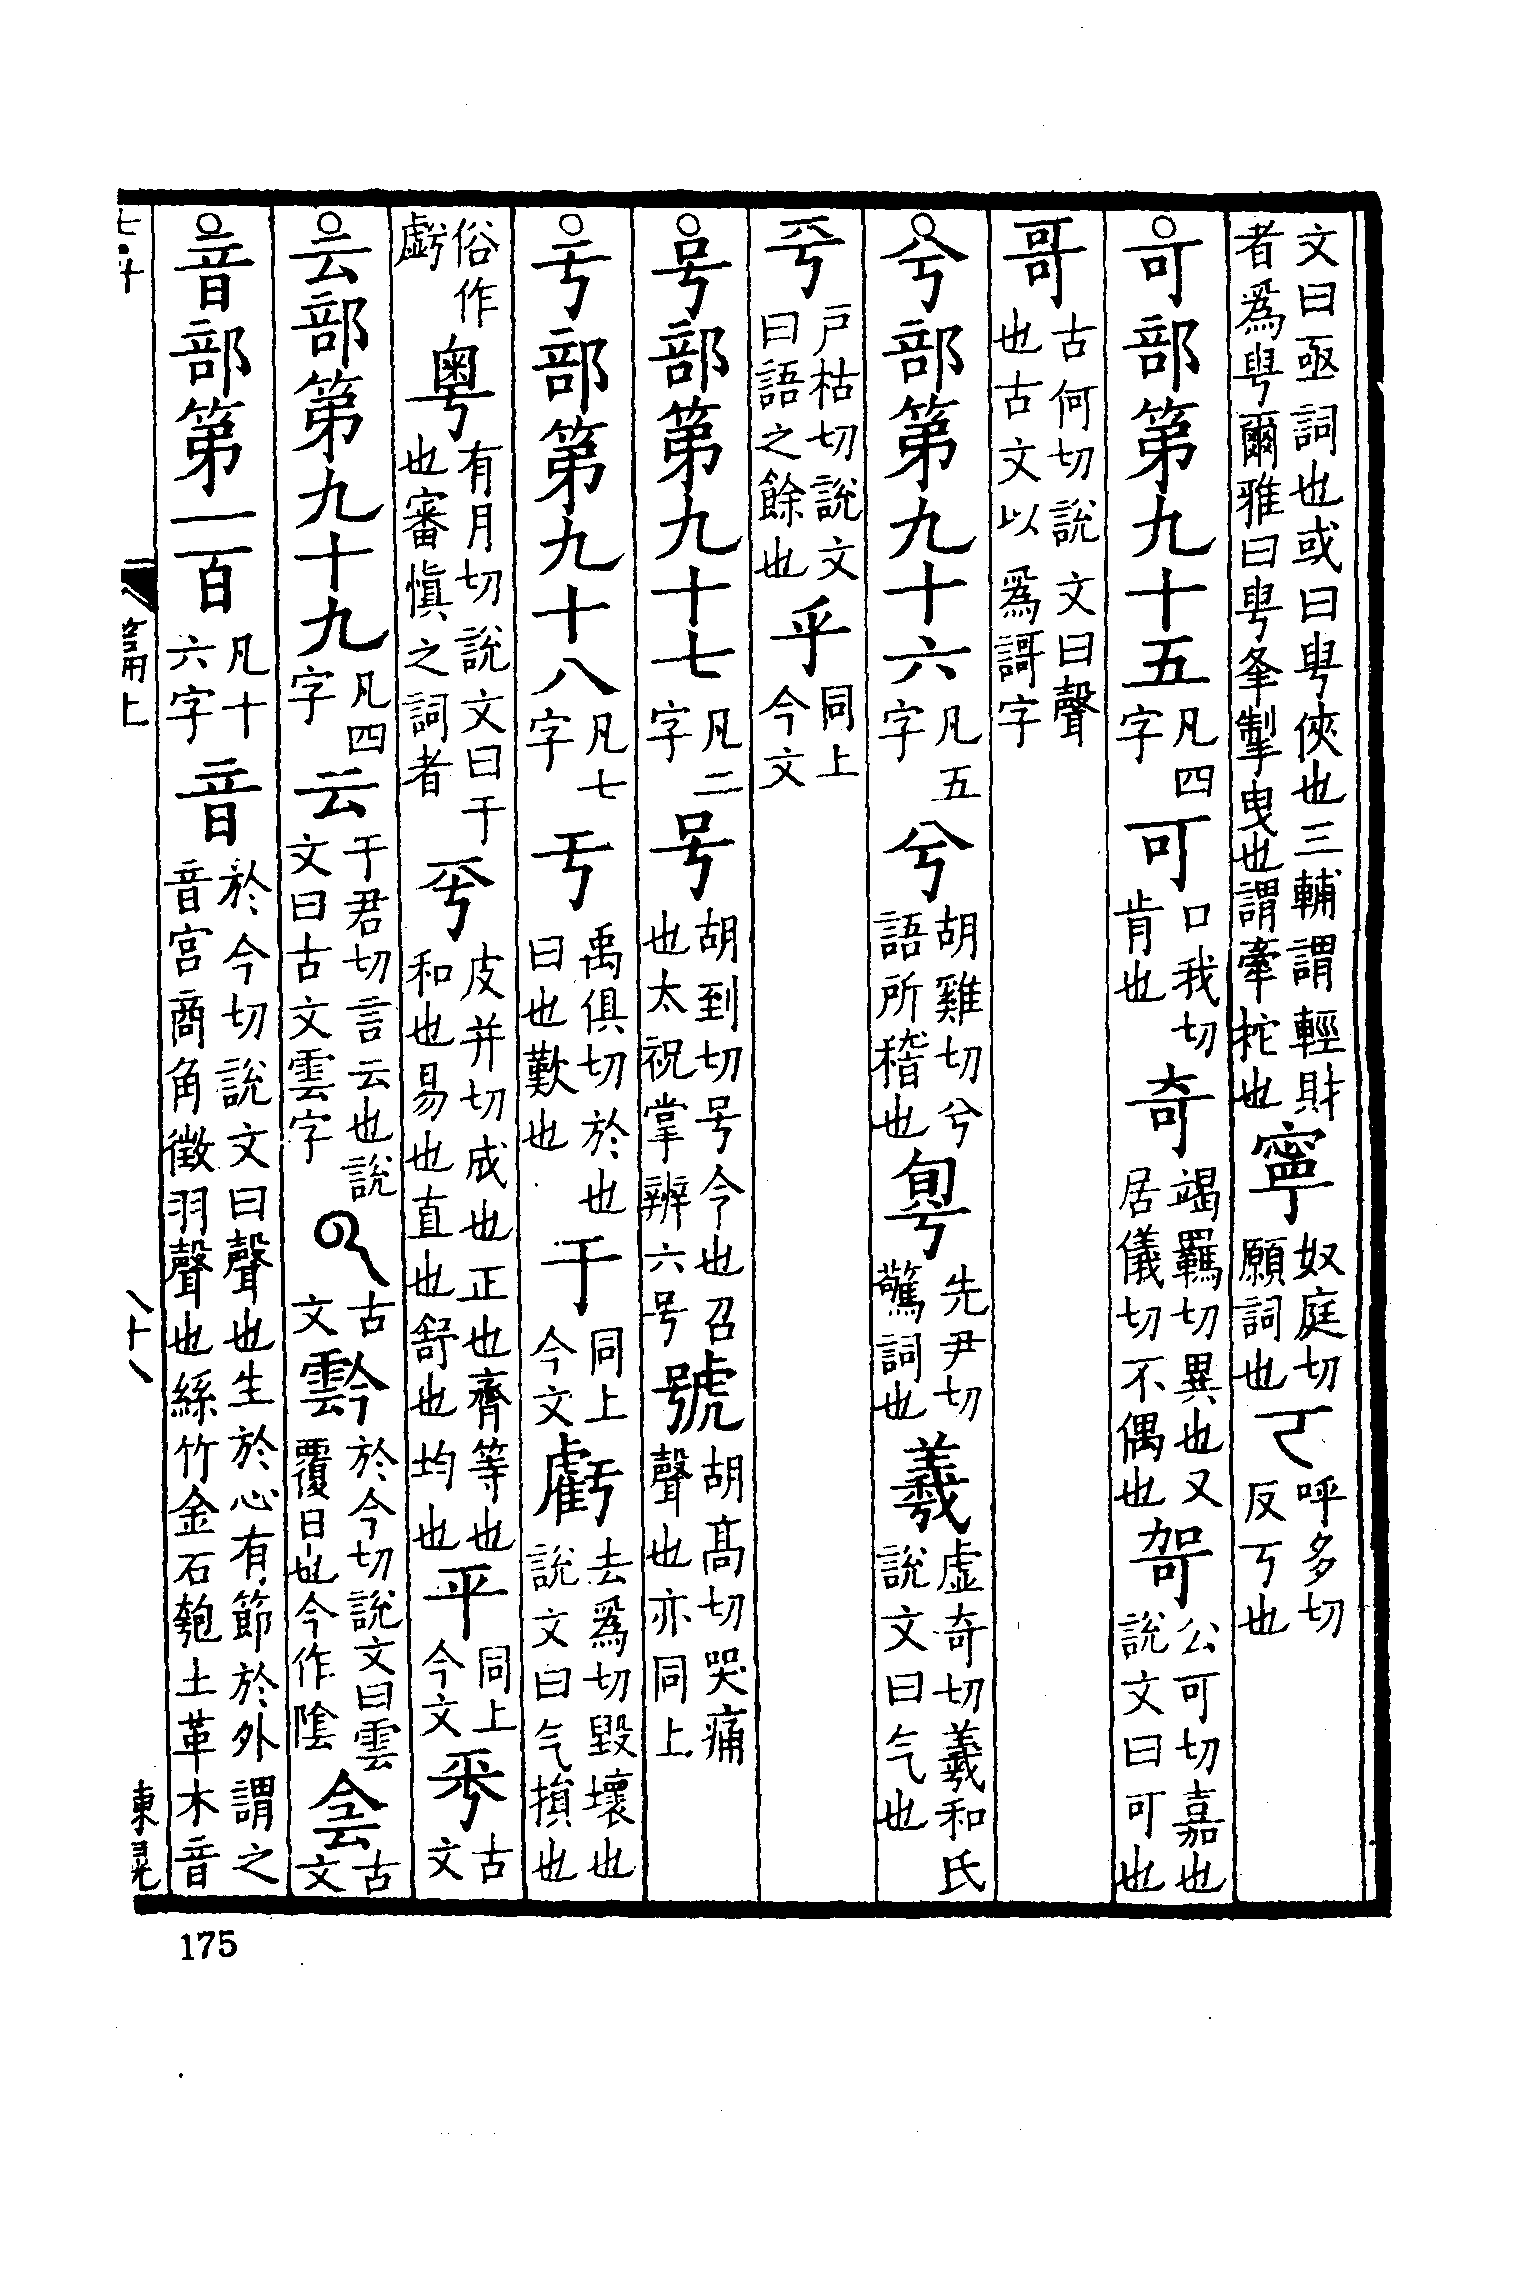 文曰亟詞也或曰甹俠也三輔謂輕財者爲甹爾雅曰甹夆掣曳也謂牽拕也寧奴庭切願詞也𠀀呼多切反丂也
可部第九十五凡四字可口我切肯也奇竭羈切異也又居儀切不偶也哿公可切嘉也說文曰可也
哥古何切說文曰聲也古文以爲謌字
兮部第九十六凡五字兮胡雞切兮語所稽也㔒先尹切驚詞也羲虛奇切羲和氏說文曰气也
乎戶枯切說文曰語之餘也乎同上今文
号部第九十七凡二字号胡到切号令也召也太祝掌辨六号號胡高切哭痛聲也亦同上
亏部第九十八凡七字亏禹俱切於也曰也歎也于同上今文虧去爲切毀壞也說文曰气損也
俗作虧粵有月切說文曰于也審慎之詞者平皮并切成也正也齊等也和也易也直也舒也均也平同上今文釆古文
云部第九十九凡四字云于君切言云也說文曰古文雲字古文霒於今切說文曰雲覆日也今作陰侌古文
音部第一百凡十六字音於今切說文曰聲也生於心有節於外謂之音宮商角徵羽聲也絲竹金石匏土革木音
篇上
八十八
175